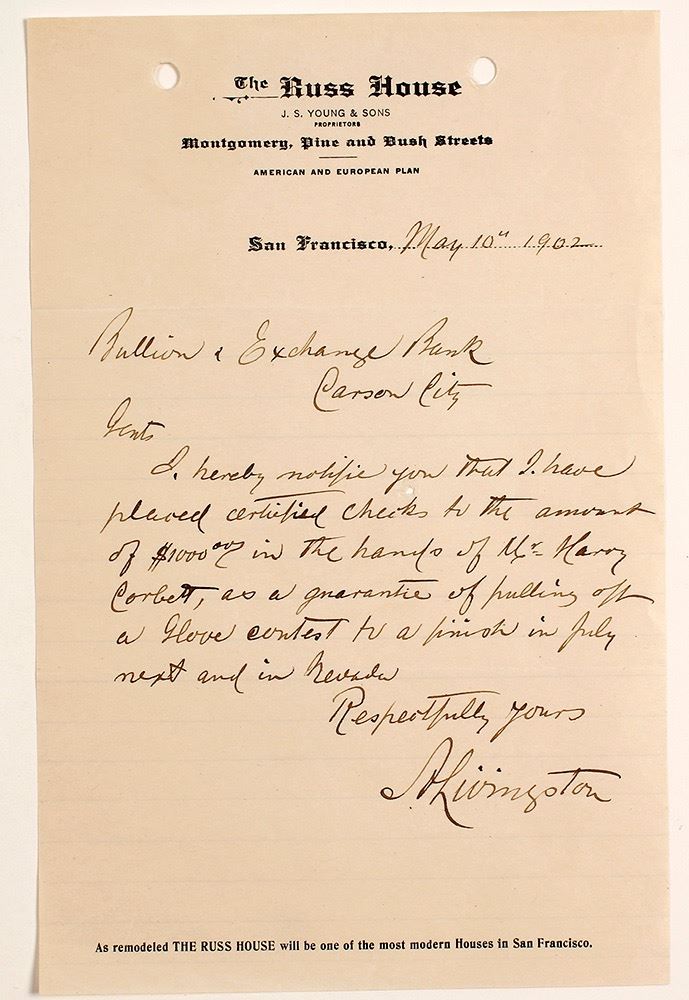 The Russ House
J. S. YOUNG & SONS
PROPRIETORS
Montgomery, Pine and Bush Streets
AMERICAN AND EUROPEAN PLAN
San Francisco, May 10th 1902
Bullion & Exchange Bank
Carson City
Gents
I. hereby notifie you that I. have
placed certified checks to the amount
of $1000.00 in the hands of Mr. Harry
Corbett, as a guarantie of pulling off
a Glove contest to a finish in July
next and in Nevada
Respectfully yours
A Livingston
As remodeled THE RUSS HOUSE will be one of the most modern Houses in San Francisco.